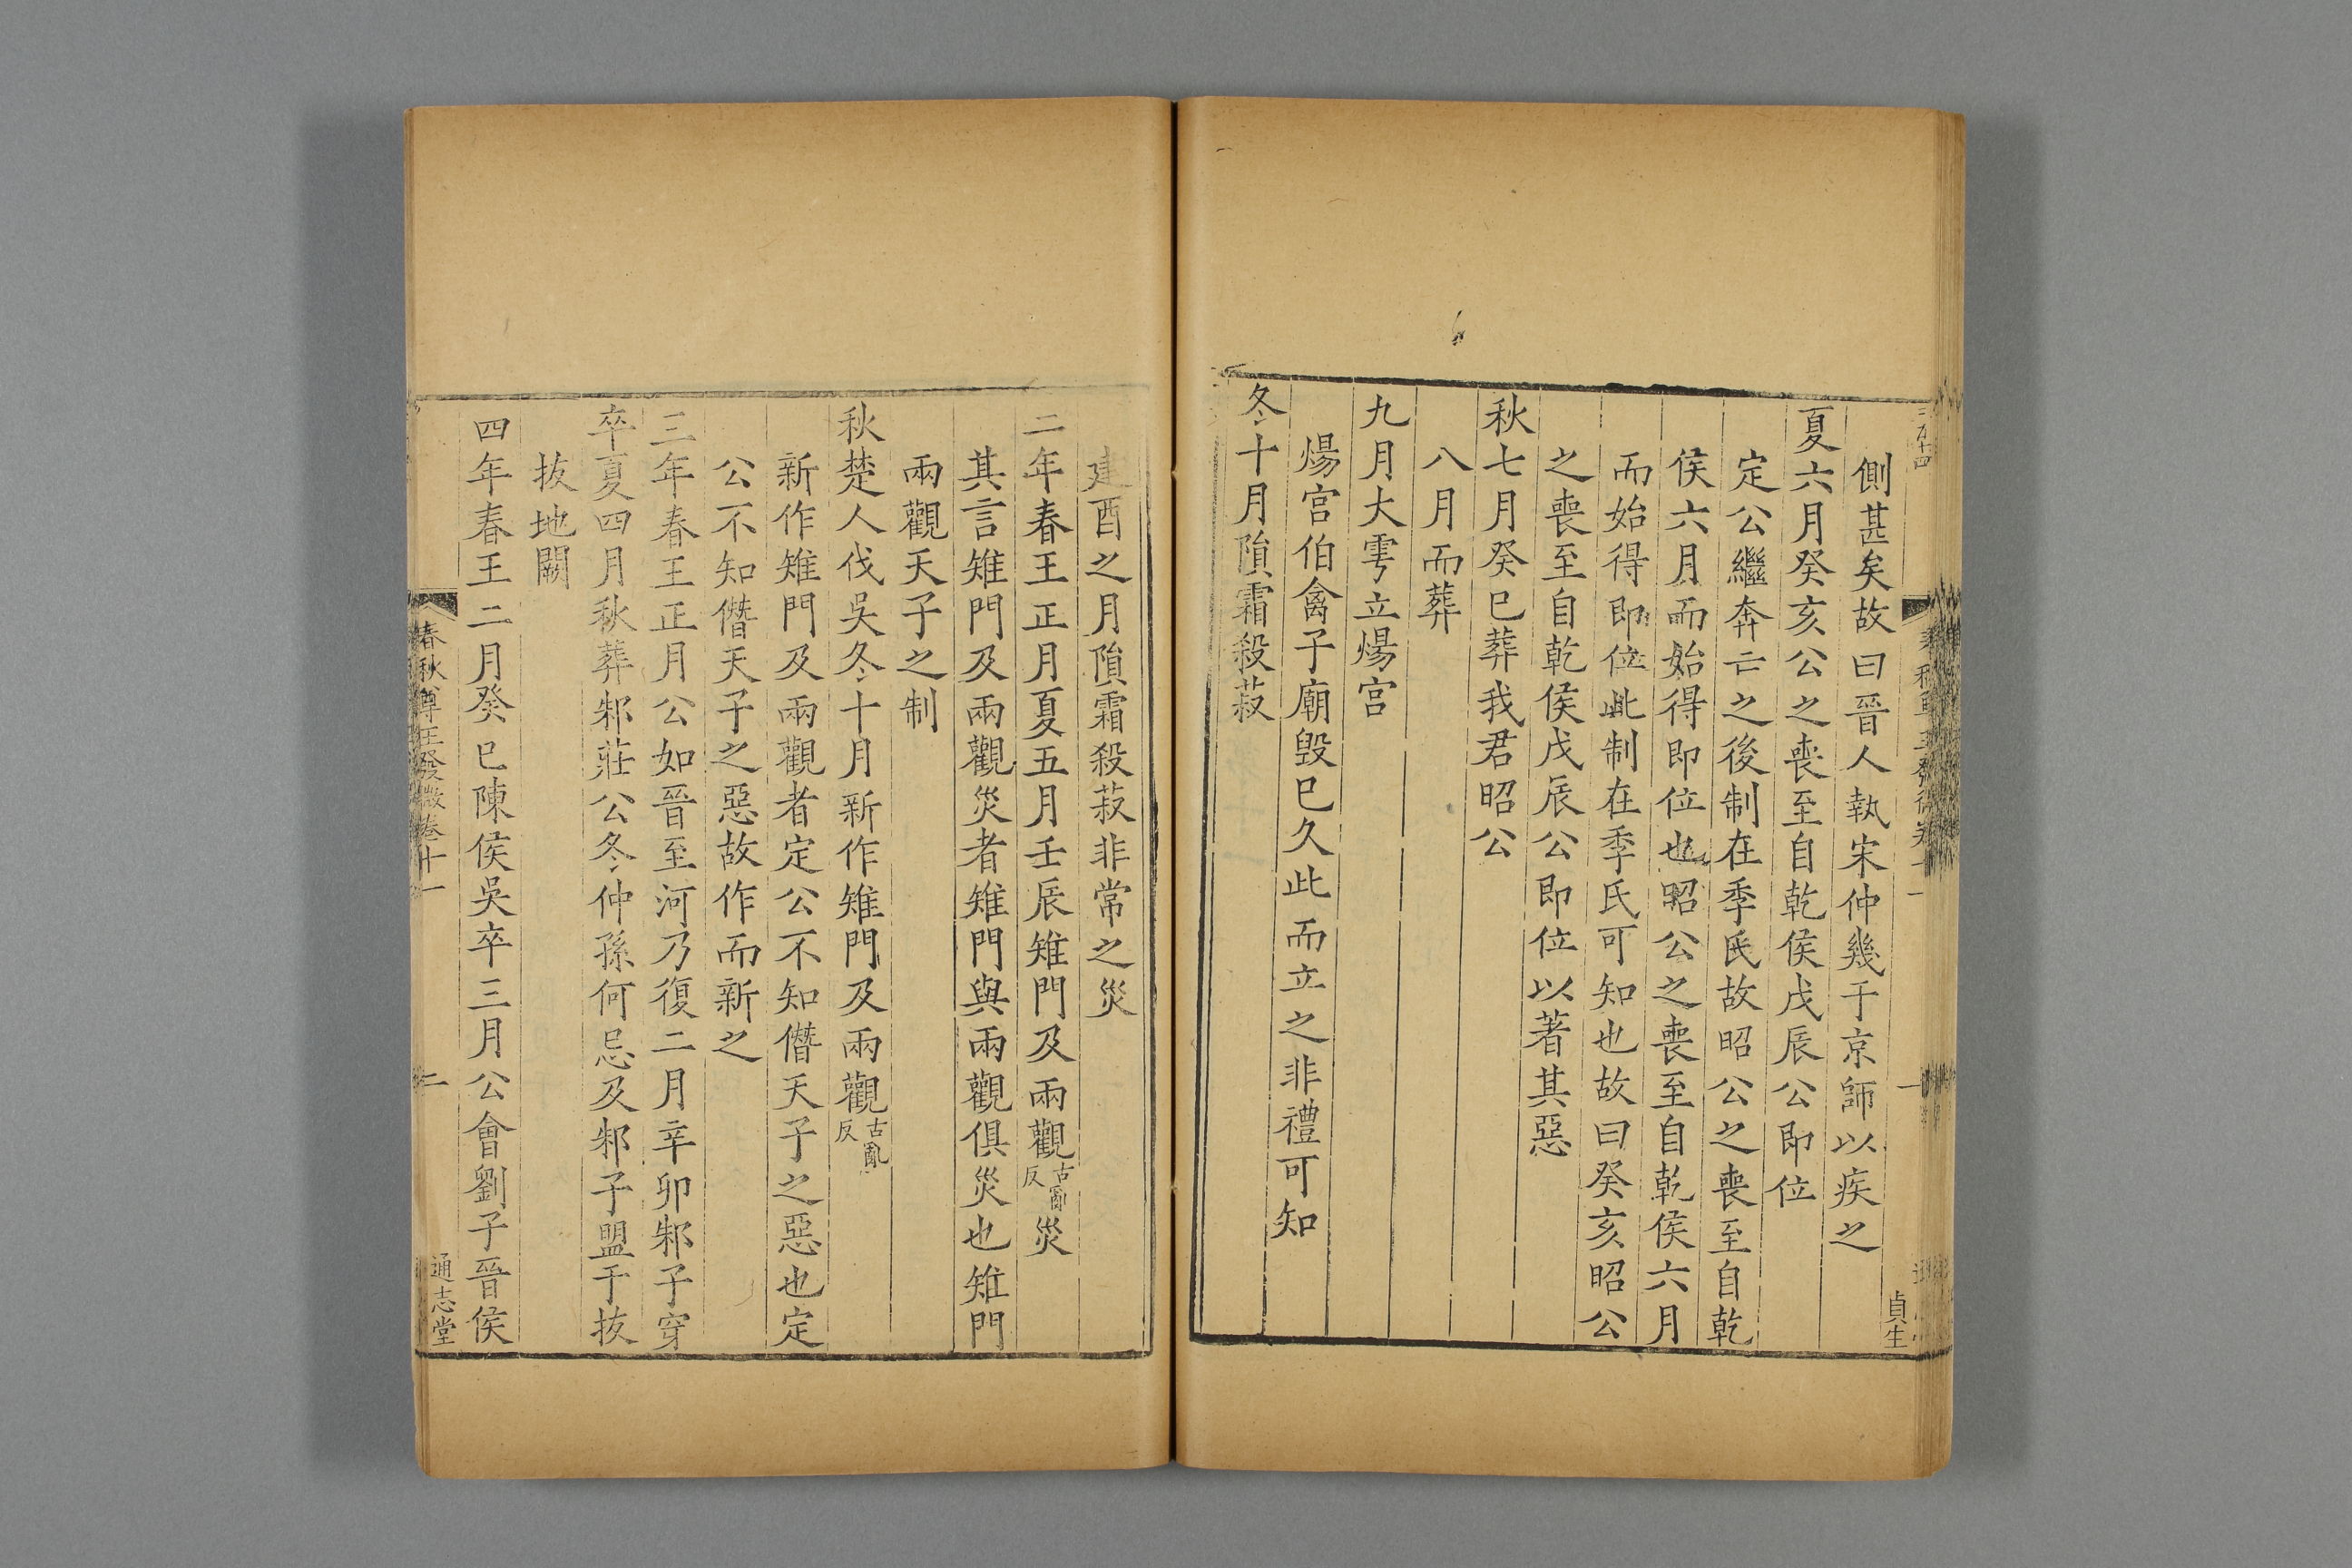 側甚矣故曰晉人執宋仲幾于京師以疾之
夏六月癸亥公之喪至自乾侯戊辰公即位
定公繼奔亡之後制在季氏故昭公之喪至自乾
侯六月而始得即位也昭公之喪至自乾侯六月
而始得即位此制在季氏可知也故曰癸亥昭公
之喪至自乾侯戊辰公即位以著其惡
秋七月癸巳葬我君昭公
八月而葬
九月大雩立煬宮
煬宮伯禽子廟毀已久此而立之非禮可知
冬十月隕霜殺菽
貞生
建酉之月隕霜殺菽非常之災
二年春王正月夏五月壬辰雉門及兩觀古亂反災
其言雉門及兩觀災者雉門與兩觀俱災也雉門
兩觀天子之制
秋楚人伐吳冬十月新作雉門及兩觀古亂反
新作雉門及兩觀者定公不知僭天子之惡也定
公不知僭天子之惡故作而新之
三年春王正月公如晉至河乃復二月辛卯邾子穿
卒夏四月秋葬邾莊公冬仲孫何忌及邾子盟于拔
拔地闕
四年春王二月癸巳陳侯吳卒三月公會劉子晉侯
春秋尊王發微卷十一
二
通志堂